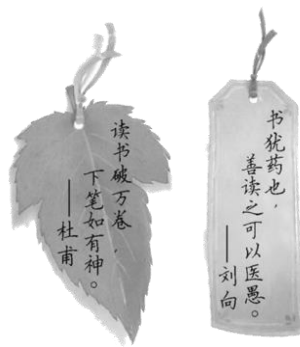 读书破万卷，
下笔如有神。
——杜甫
书犹药也，
善读之可以医愚。
——刘向